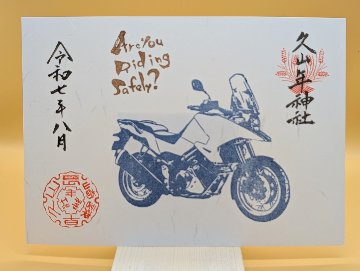 久山年神社
Are You
Riding
Safely?
令和七年八月